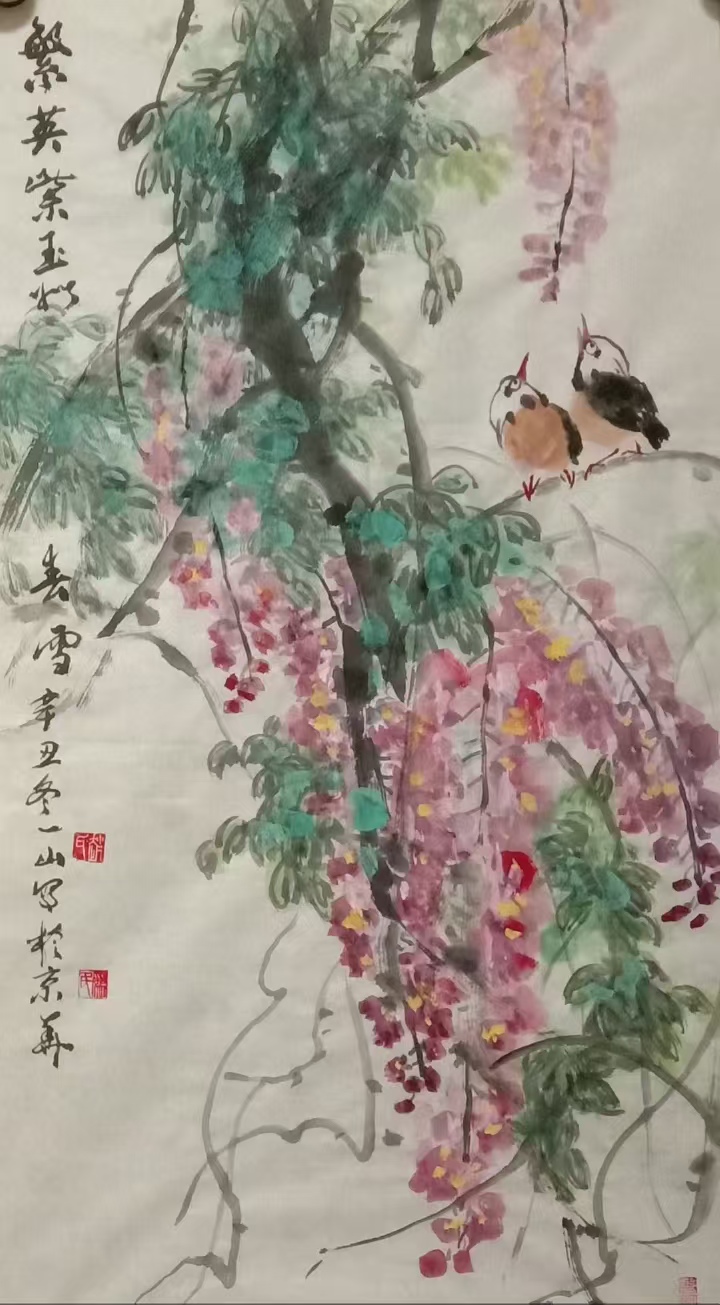 繁英紫玉
春雪辛丑冬一山写於京華